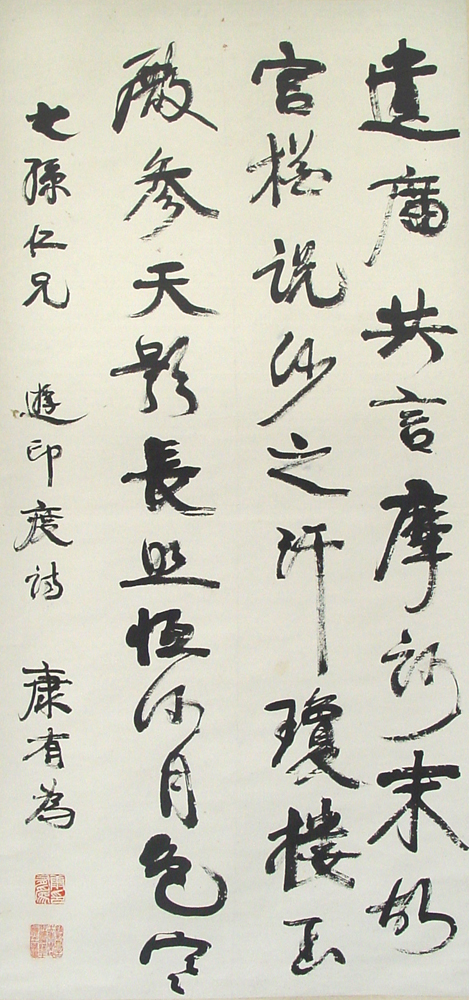 遺廟共言摩訶末故
宮猶說沙之汗瓊樓玉
殿參天影長照恆河月色寒
七孫仁兄 遊印度詩 康有為